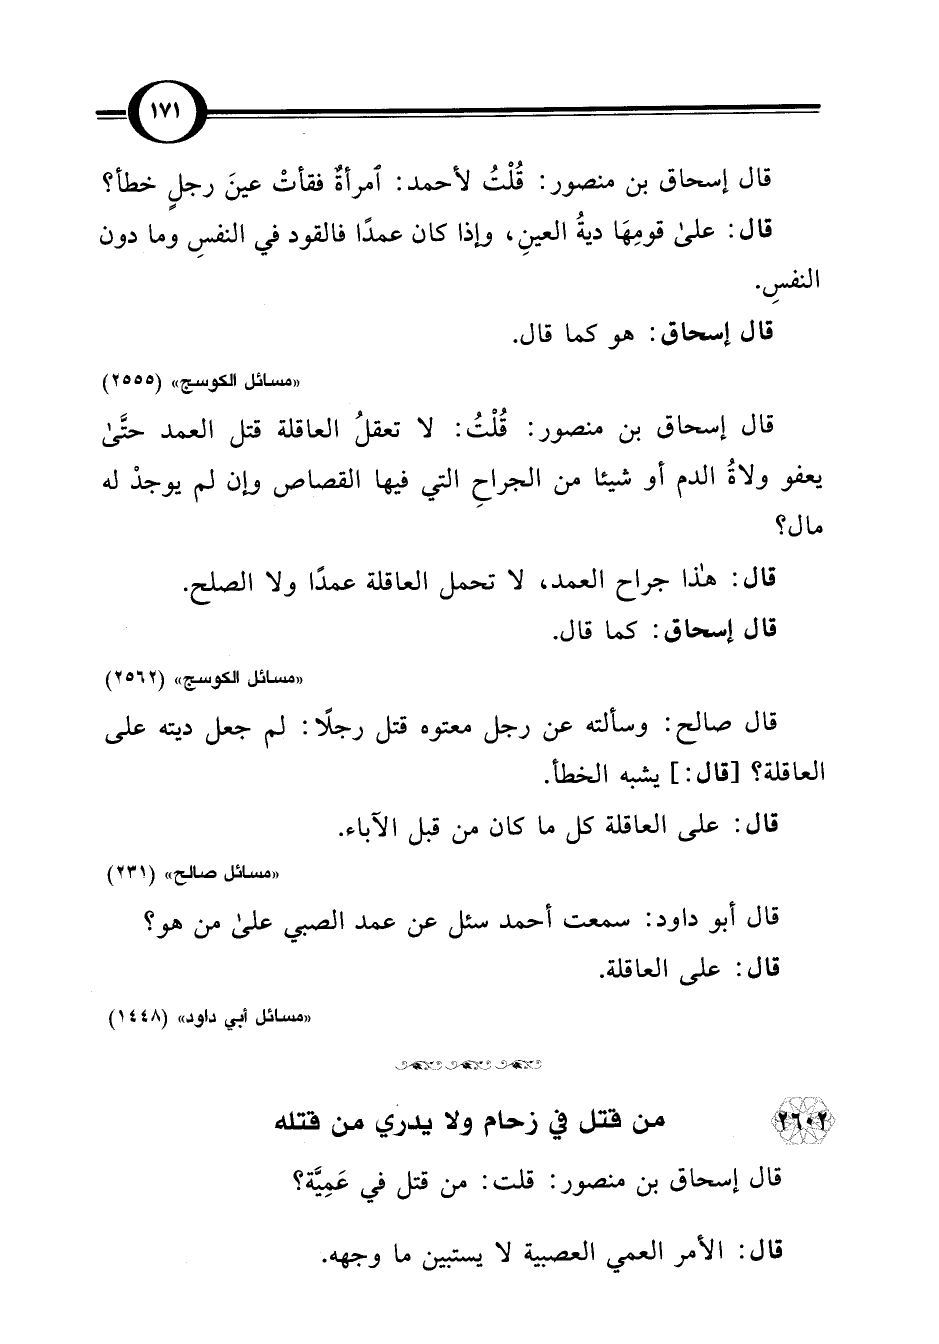 ١٧١
قال إسحاق بن منصور: قُلْتُ لأحمد: ٱمرأةٌ فقأتْ عينَ رجلٍ خطأ؟
قال: علىٰ قومِهَا ديةُ العينِ، وإذا كان عمدًا فالقود في النفسِ وما دون
النفسِ.
قال إسحاق: هو كما قال.
«مسائل الكوسج» (٢٥٥٥)
قال إسحاق بن منصور: قُلْتُ: لا تعقلُ العاقلة قتل العمد حتَّىٰ
يعفو ولاةُ الدم أو شيئا من الجراحِ التي فيها القصاص وإن لم يوجدْ له
مال؟
قال: هٰذا جراح العمد، لا تحمل العاقلة عمدًا ولا الصلح.
قال إسحاق: كما قال.
«مسائل الكوسج» (٢٥٦٢)
قال صالح: وسألته عن رجل معتوه قتل رجلًا: لم جعل ديته على
العاقلة؟ [قال:] يشبه الخطأ.
قال: على العاقلة كل ما كان من قبل الآباء.
«مسائل صالح» (٢٣١)
قال أبو داود: سمعت أحمد سئل عن عمد الصبي علىٰ من هو؟
قال: على العاقلة.
«مسائل أبي داود» (١٤٤٨)
٢٦٠٢ من قتل في زحام ولا يدري من قتله
قال إسحاق بن منصور: قلت: من قتل في عَمِيَّة؟
قال: الأمر العمي العصبية لا يستبين ما وجهه.